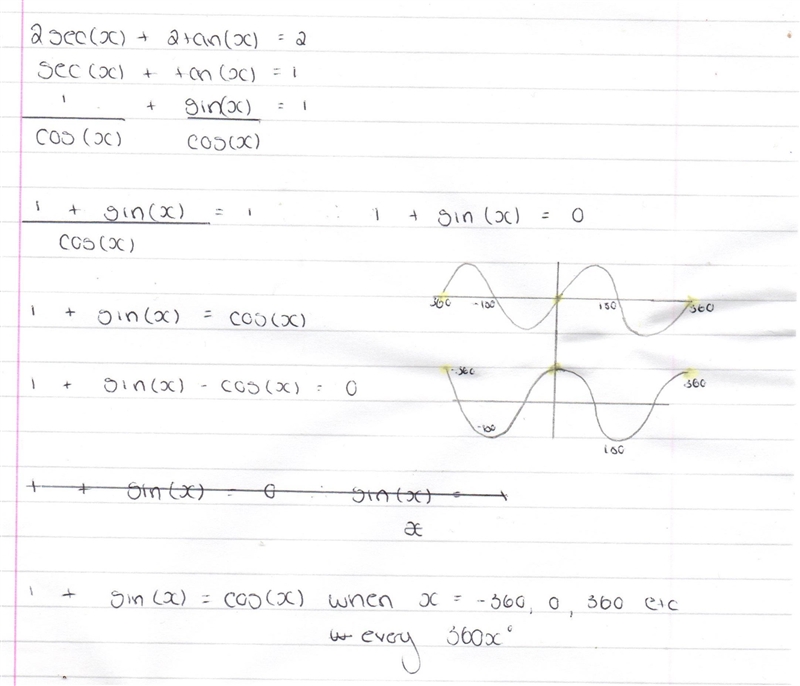 2sec(x) + 2tan(x) = 2
sec(x) + tan(x) = 1
1/cos(x) + sin(x)/cos(x) = 1
(1 + sin(x))/cos(x) = 1 ∴ 1 + sin(x) = 0
360 -180 180 360
1 + sin(x) = cos(x)
-360 360
1 + sin(x) - cos(x) = 0
-180 180
1 + sin(x) = 0 ∴ sin(x) = -1
x
1 + sin(x) = cos(x) when x = -360, 0, 360 etc
every 360x°